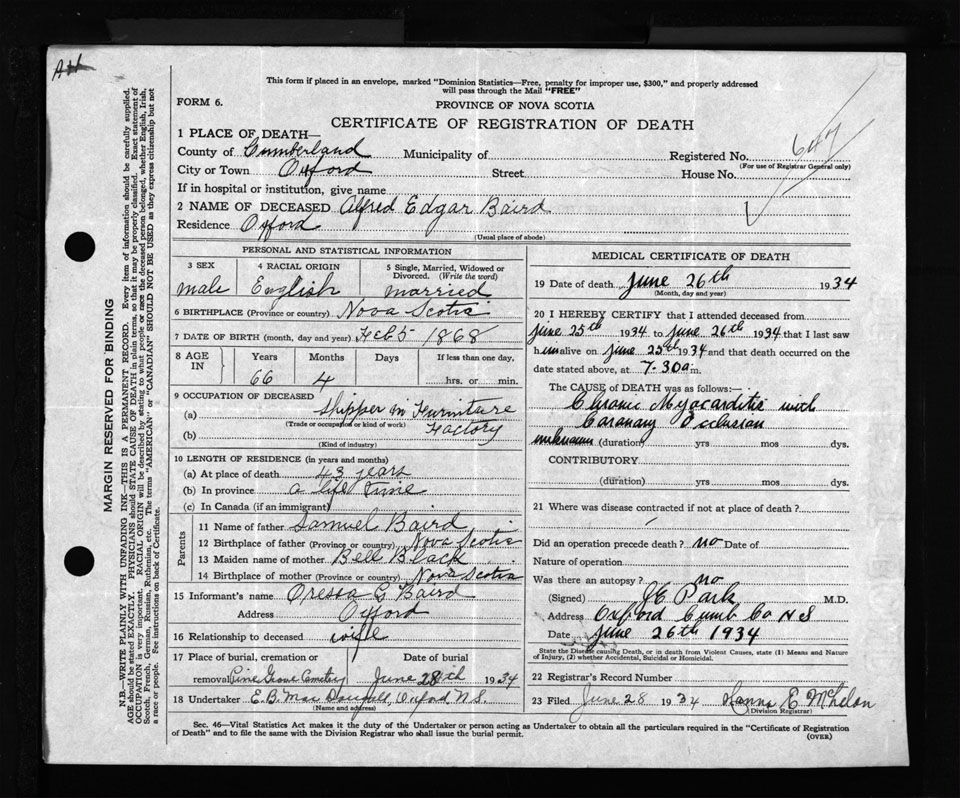 This form if placed in an envelope, marked "Dominion Statistics—Free, penalty for improper use, $300," and properly addressed
will pass through the Mail "FREE"
FORM 6.
PROVINCE OF NOVA SCOTIA
CERTIFICATE OF REGISTRATION OF DEATH
647
1 PLACE OF DEATH—
County of Cumberland Municipality of Registered No.
(For use of Registrar General only)
City or Town Oxford Street House No.
If in hospital or institution, give name
2 NAME OF DECEASED Alfred Edgar Baird
Residence Oxford
(Usual place of abode)
PERSONAL AND STATISTICAL INFORMATION
3 SEX
male
4 RACIAL ORIGIN
English
5 Single, Married, Widowed or
Divorced. (Write the word)
married
6 BIRTHPLACE (Province or country) Nova Scotia
7 DATE OF BIRTH (month, day and year) Feb 5 1868
8 AGE
IN
Years Months Days If less than one day,
66 4 hrs. or min.
9 OCCUPATION OF DECEASED
(a) Shipper in Furniture
(Trade or occupation or kind of work) Factory
(b)
(Kind of industry)
10 LENGTH OF RESIDENCE (in years and months)
(a) At place of death 43 years
(b) In province a life time
(c) In Canada (if an immigrant)
Parents
11 Name of father Samuel Baird
12 Birthplace of father (Province or country) Nova Scotia
13 Maiden name of mother Bell Black
14 Birthplace of mother (Province or country) Nova Scotia
15 Informant's name Oressa G Baird
Address Oxford
16 Relationship to deceased wife
17 Place of burial, cremation or Date of burial
removal Pine Grove Cemetery June 28th 1934
18 Undertaker E.B. Mac Dougall, Oxford N.S.
(Name and address)
MEDICAL CERTIFICATE OF DEATH
19 Date of death June 26th 1934
(Month, day and year)
20 I HEREBY CERTIFY that I attended deceased from
June 25th 1934 to June 26th 1934 that I last saw
him alive on June 25th 1934 and that death occurred on the
date stated above, at 7-30 a m.
The CAUSE OF DEATH was as follows:—
Chronic Myocarditis with
Coronary Occlusion
unknown (duration) yrs mos dys.
CONTRIBUTORY
(duration) yrs mos dys.
21 Where was disease contracted if not at place of death?
Did an operation precede death? no Date of
Nature of operation
Was there an autopsy? no
(Signed) J E Park M.D.
Address Oxford Cumb Co N S
Date June 26th 1934
State the Disease causing Death, or in death from Violent Causes, state (1) Means and Nature
of Injury, (2) whether Accidental, Suicidal or Homicidal.
22 Registrar's Record Number
23 Filed June 28 1934 Hanna E
Division Registrar)
Sec. 46—Vital Statistics Act makes it the duty of the Undertaker or person acting as Undertaker to obtain all the particulars required in the "Certificate of Registration
of Death" and to file the same with the Division Registrar who shall issue the burial permit.
(OVER)
MARGIN RESERVED FOR BINDING
N.B.—WRITE PLAINLY WITH UNFADING INK—THIS IS A PERMANENT RECORD. Every item of information should be carefully supplied.
AGE should be stated EXACTLY. PHYSICIANS should STATE CAUSE OF DEATH in plain terms, so that it may be properly classified. Exact statement of
OCCUPATION is very important. RACIAL ORIGIN will be described by stating to what people or race the deceased person belonged, whether English, Irish,
Scotch, French, German, Russian, Ruthenian, etc. The terms "AMERICAN" or "CANADIAN" SHOULD NOT BE USED as they express citizenship but not
a race or people. See instructions on back of Certificate.